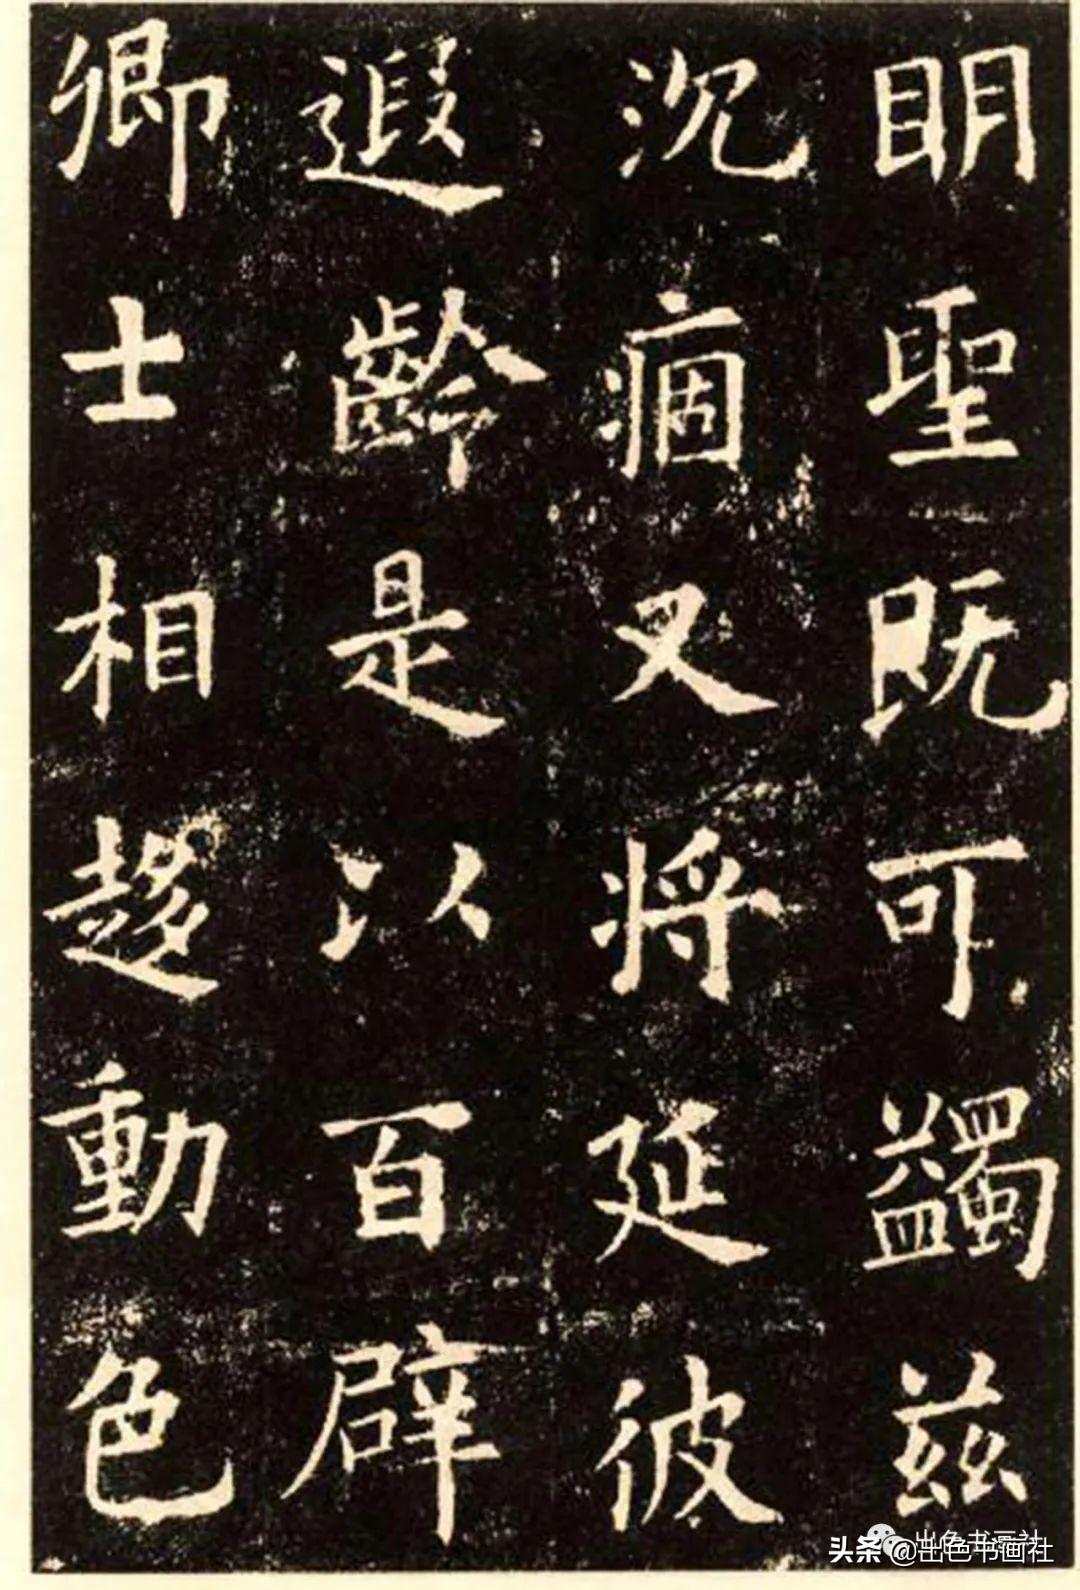 眀聖既可蠲兹
沉痼又将延彼
遐齡是以百辟
卿士相趍動色
出色书画社
头条 @出色书画社